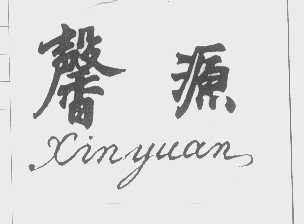 馨源
Xinyuan